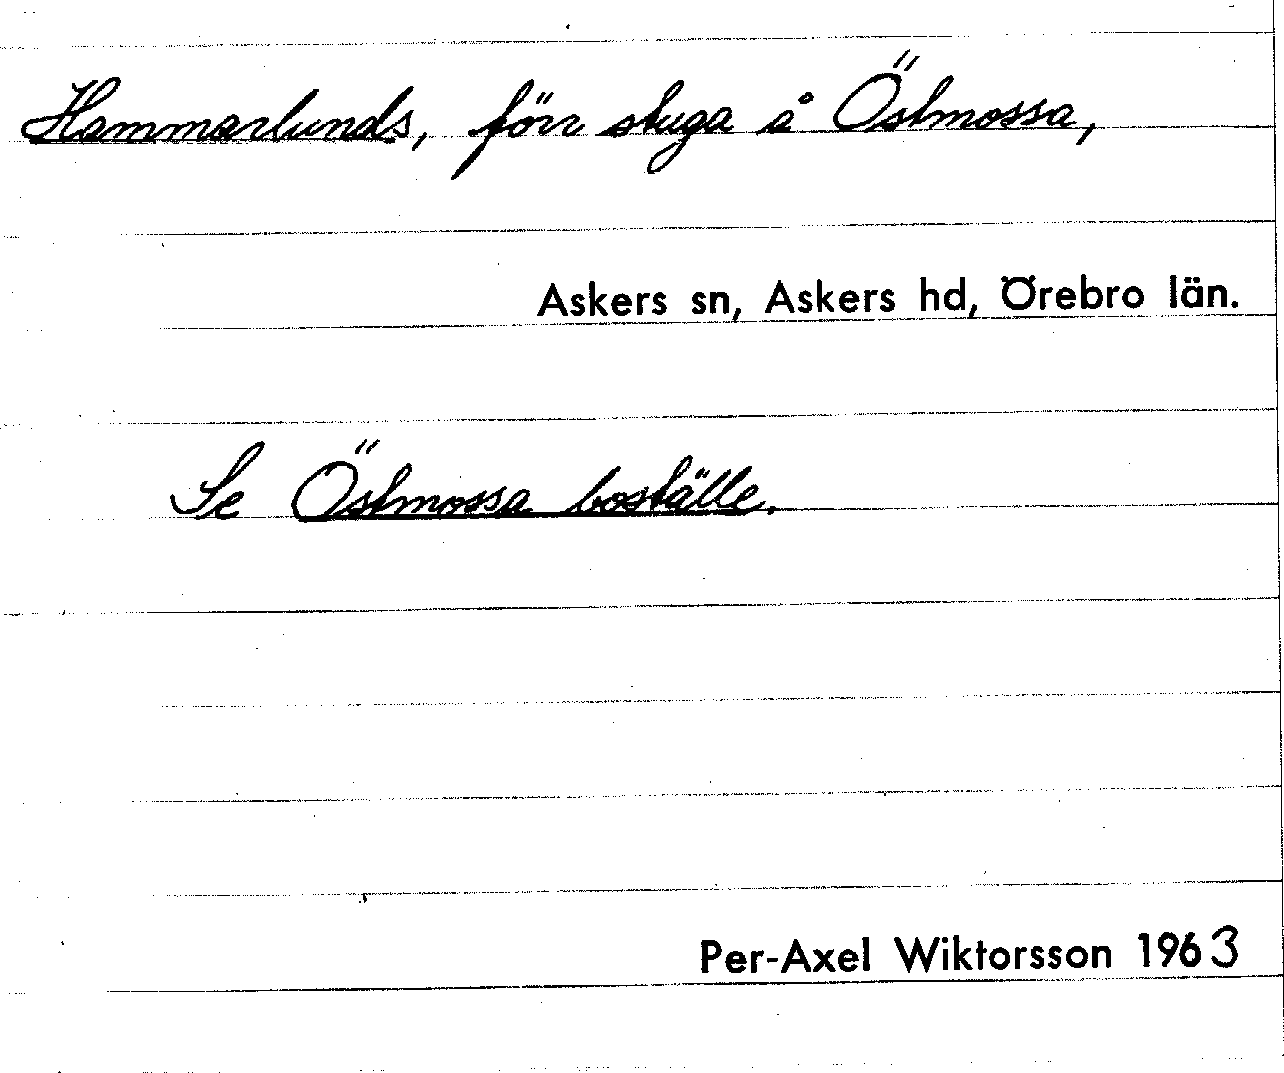 Hammarlunds, förr stuga å Östmossa,
Askers sn, Askers hd, Örebro län.
Se Östmossa boställe.
Per-Axel Wiktorsson 1963